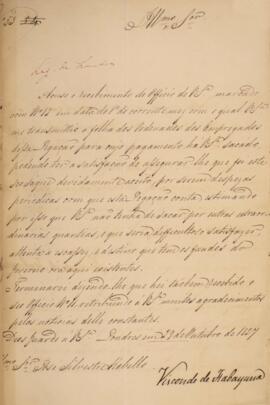 Illmo Snr
Accuso o recebimento do Officio de V.Sa. marcado
com No 15 em data do 1o do corrente mez com o qual V.Sa.
me transmittio a folha dos Ordenados dos Empregados
dessa Legação para cujo pagamento ha V.Sa. sacado,
podendo ter a satisfação de assegurar-lhe que foi este
seo saque devidamente aceito por serem despezas
periodicas com que esta Legação conta, estimando
por isso que V.Sa. não tenha de sacar por outras extraor-
dinarias quantias, o que seria difficultoso satisfazer,
attenta a escassez, e destino que tem os fundos do
Governo ora aqui existentes.
Terminarei dizendo-lhe que hei tambem recebido o
seo Officio No 14, retribuindo a V.Sa. meus agradecimentos
pelas noticias delle constantes.
Deos guarde a V.Sa. Londres em 9 de Outubro de 1827
Illmo Snr José Silvestre Rebello
Visconde de Itabayana